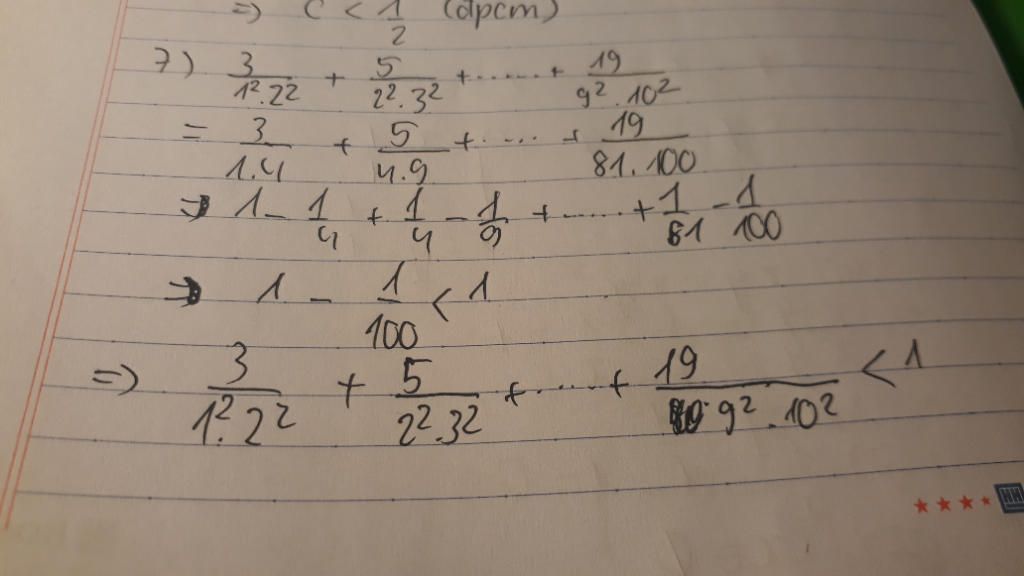 => C < 1/2 (đpcm)
7) 3/1².2² + 5/2².3² +......+ 19/9².10²
= 3/1.4 + 5/4.9 +..... + 19/81.100
=> 1 - 1/4 + 1/4 - 1/9 +......+ 1/81 - 1/100
=> 1 - 1/100 < 1
=> 3/1².2² + 5/2².3² +......+ 19/9².10² < 1